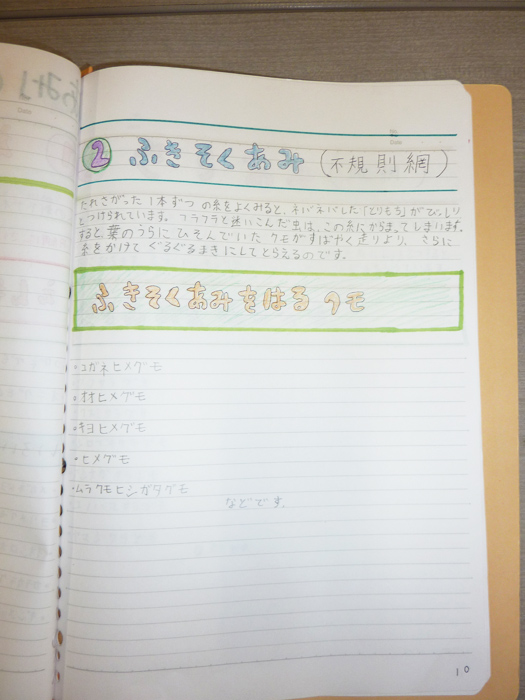 ② ふきそくあみ (不規則網)
たれさがった1本ずつの糸をよくみると、ネバネバした「とりもち」がびっしり
とつけられています。フラフラと迷いこんだ虫は、この糸にからまってしまいます。
すると、葉のうらにひそんでいたクモがすばやく走りより、さらに
糸をかけてぐるぐるまきにしてとらえるのです。
ふきそくあみをはるクモ
・コガネヒメグモ
・オオヒメグモ
・キヨヒメグモ
・ヒメグモ
・ムラクモヒシガタグモ
などです。
10